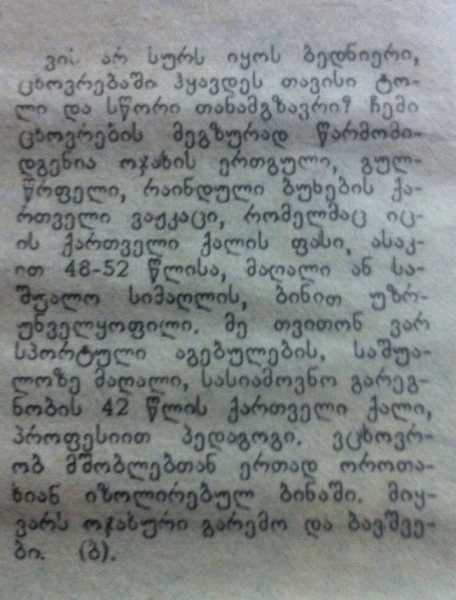 ვის არ სურს იყოს ბედნიერი,
ცხოვრებაში ჰყავდეს თავისი ტო-
ლი და სწორი თანამგზავრი? ჩემი
ცხოვრების მეგზურად წარმომი-
დგენია ოჯახის ერთგული, გულ-
წრფელი, რაინდული ბუნების ქა-
რთველი ვაჟკაცი, რომელმაც იც-
ის ქართველი ქალის ფასი, ასაკ-
ით 48-52 წლისა, მაღალი ან სა-
შუალო სიმაღლის, ბინით უზრ-
უნველყოფილი. მე თვითონ ვარ
სპორტული აგებულების, საშუა-
ლოზე მაღალი, სასიამოვნო გარეგ-
ნობის 42 წლის ქართველი ქალი,
პროფესიით პედაგოგი. ვცხოვრ-
ობ მშობლებთან ერთად ოროთა-
ხიან იზოლირებულ ბინაში. მიყ-
ვარს ოჯახური გარემო და ბავშვე-
ბი. (ბ).